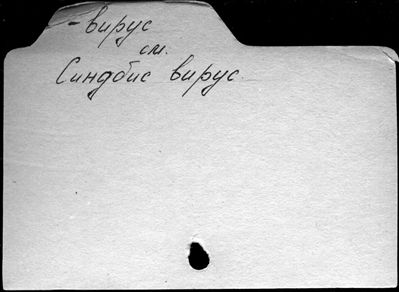 - вирус
см.
Синдбис вирус